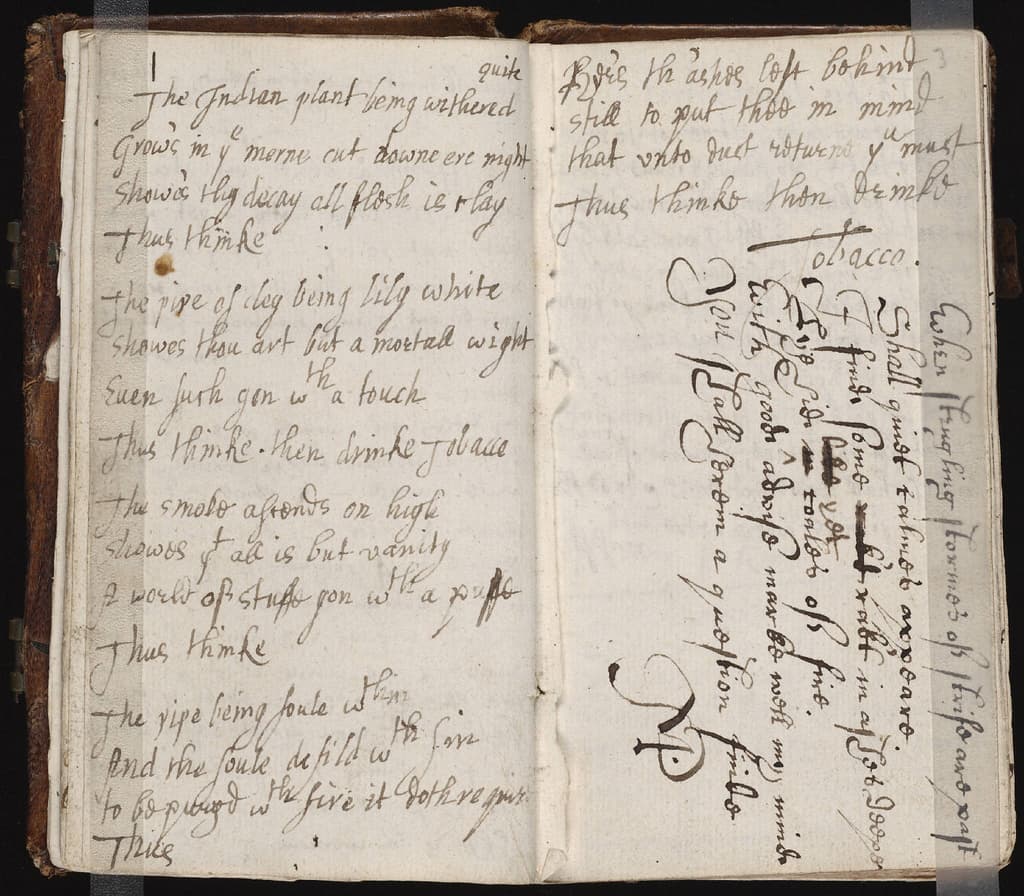 1
quite
The Indian plant being withered
Grows in yᵉ morne cut downe ere night
Showes thy decay all flesh is clay
Thus thinke
The pipe of cley being lily white
Showes thou art but a mortall wight
Euen such gon wᵗʰ a touch
Thus thinke then drinke Tobacco
The smoke asends on high
Showes yᵗ all is but vanity
A world of stuffe gon wᵗʰ a puffe
Thus thinke
The pipe being foule wᵗʰin
And the soule defild wᵗʰ sin
to be purged wᵗʰ fire it doth requir
Thus
3
th ashes left behind
still to put thee in mind
that vnto dust returne yᵘ must
Thus thinke then drinke
Tobacco.
When strugling stormes of strife are past
Shall quiet calmes appeare.
I find some in ashes deepe
coales of fire.
With good advise marke well my mind
You shall herein a question finde